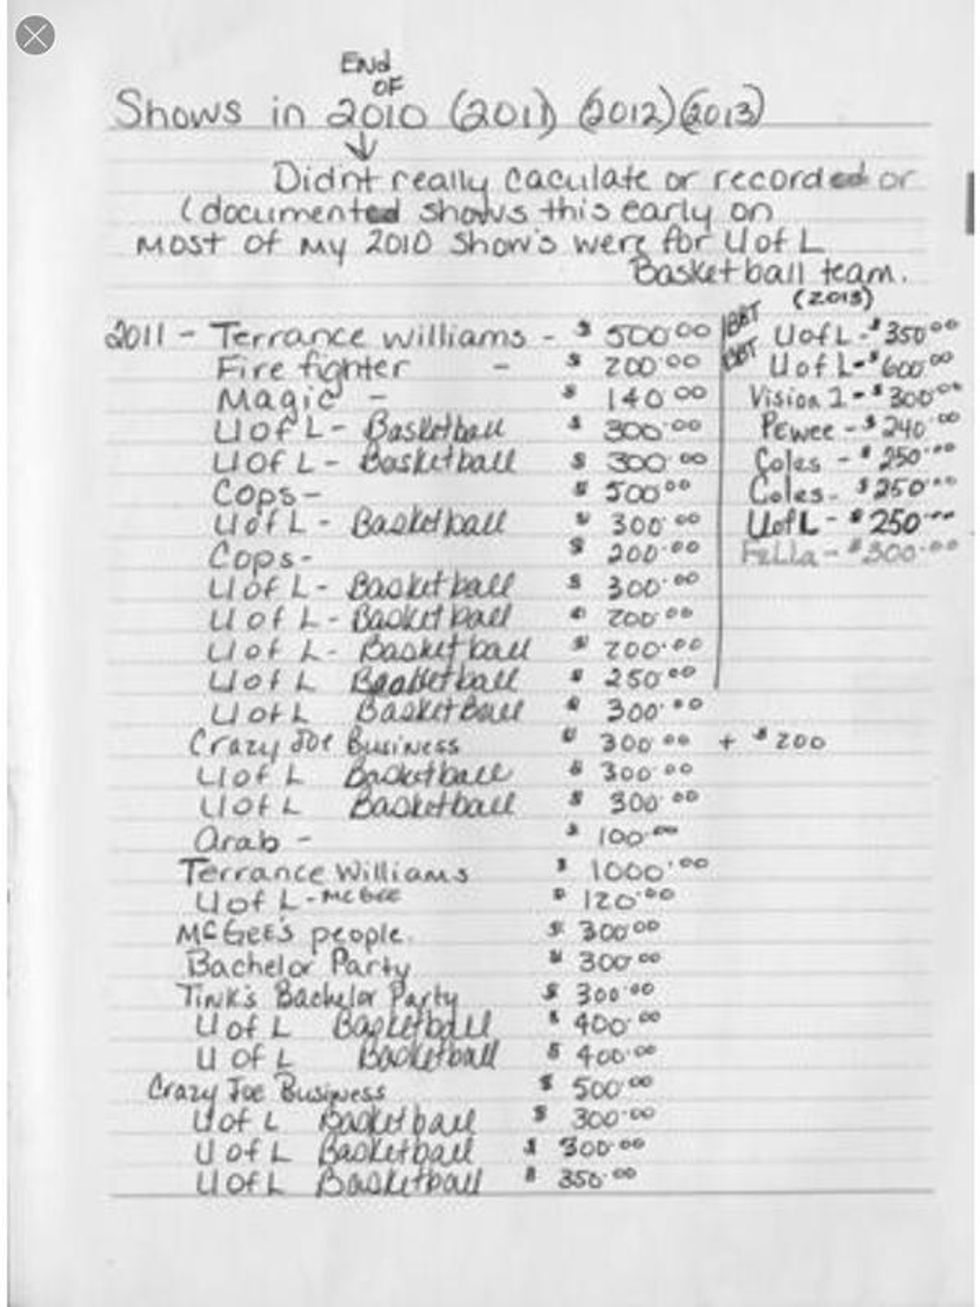 End
OF
Shows in 2010 (2011) (2012) (2013)
Didn't really caculate or recorded or
(documented shows this early on
Most of my 2010 show's were for U of L
Basketball team.
(2013)
2011 - Terrance Williams - $ 500.00
Fire fighter - $ 200.00
Magic - $ 140.00
U of L - Basketball $ 300.00
U of L - Basketball $ 300.00
Cops - $ 500.00
U of L - Basketball $ 300.00
Cops - $ 200.00
U of L - Basketball $ 300.00
U of L - Basketball $ 200.00
U of L - Basketball $ 200.00
U of L Basketball $ 250.00
U of L BasketBall $ 300.00
Crazy Joe Business $ 300.00 + $200
U of L Basketball $ 300.00
U of L Basketball $ 300.00
Arab - $ 100.00
Terrance Williams $ 1000.00
U of L - McGee $ 120.00
McGee's people. $ 300.00
Bachelor Party $ 300.00
Tink's Bachelor Party $ 300.00
U of L Basketball $ 400.00
U of L Basketball $ 400.00
Crazy Joe Business $ 500.00
U of L Basketball $ 300.00
U of L Basketball $ 300.00
U of L Basketball $ 350.00
BBT U of L - $350.00
BBT U of L - $600.00
Vision 1 - $300.00
Pewee - $240.00
Coles - $250.00
Coles - $250.00
U of L - $250.00
Fella - $300.00